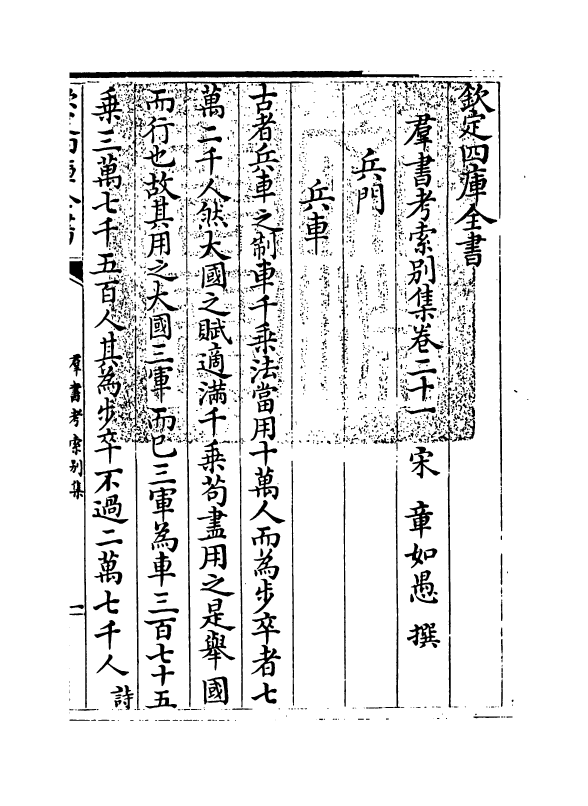 欽定四庫全書
羣書考索別集卷二十一 宋 章如愚 撰
兵門
兵車
古者兵車之制車千乘法當用十萬人而為步卒者七
萬二千人然大國之賦適滿千乘苟盡用之是舉國
而行也故其用之大國三軍而已三軍為車三百七十五
乘三萬七千五百人其為步卒不過二萬七千人詩
欽定四庫全書
羣書考索別集